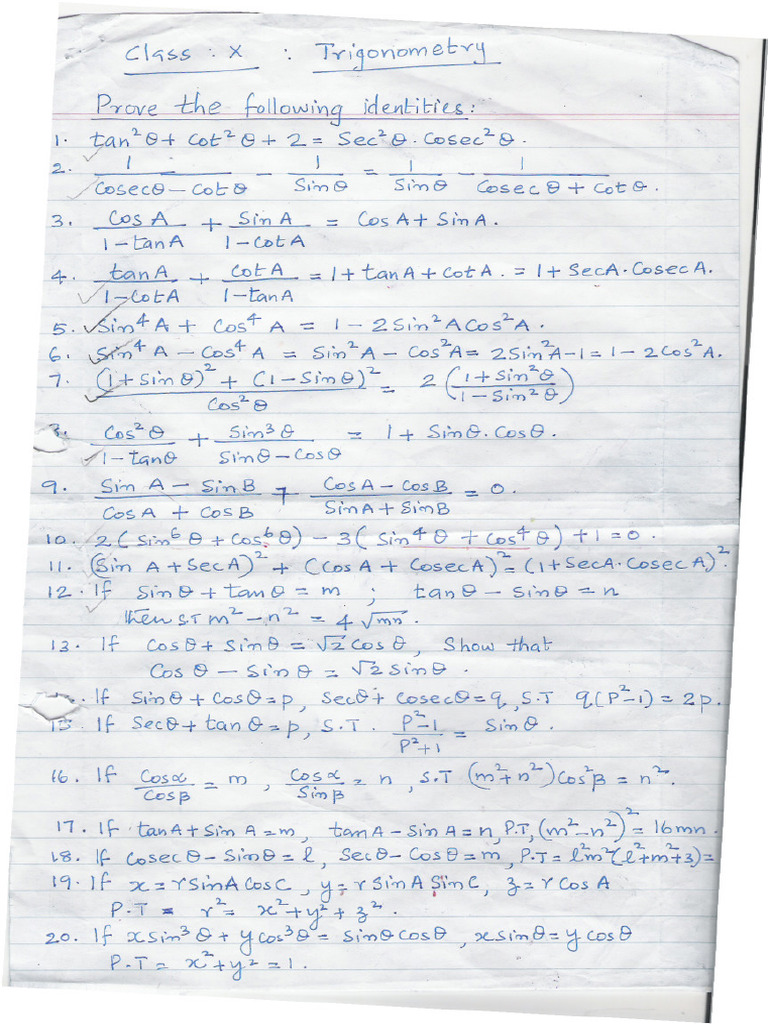 Class : X : Trigonometry
Prove the following identities:
1. tan²θ + cot²θ + 2 = Sec²θ. Cosec²θ.
2. 1/(Cosecθ-Cotθ) - 1/Sinθ = 1/Sinθ - 1/(Cosecθ + Cotθ).
3. CosA/(1-tanA) + SinA/(1-CotA) = CosA + SinA.
4. tanA/(1-CotA) + CotA/(1-tanA) = 1 + tanA + CotA. = 1 + SecA.CosecA.
5. Sin⁴A + Cos⁴A = 1 - 2Sin²ACos²A.
6. Sin⁴A - Cos⁴A = Sin²A - Cos²A = 2Sin²A-1 = 1 - 2Cos²A.
7. ((1+Sinθ)² + (1-Sinθ)²)/Cos²θ = 2((1+Sin²θ)/(1-Sin²θ))
Cos²θ/(1-tanθ) + Sin³θ/(Sinθ-Cosθ) = 1 + Sinθ.Cosθ.
9. (SinA - SinB)/(CosA + CosB) + (CosA - CosB)/(SinA + SinB) = 0.
10. 2(Sin⁶θ + Cos⁶θ) - 3(Sin⁴θ + Cos⁴θ) + 1 = 0.
11. (Sin A + SecA)² + (CosA + CosecA)² = (1+SecA.CosecA)².
12. If Sinθ + tanθ = m ; tanθ - Sinθ = n
then S.T m² - n² = 4√mn.
13. If Cosθ + Sinθ = √2 Cosθ, Show that
Cosθ - Sinθ = √2 Sinθ.
. If Sinθ + Cosθ = p, Secθ + Cosecθ = q, S.T q(P²-1) = 2p.
15. If Secθ + tanθ = p, S.T. (P²-1)/(P²+1) = Sinθ.
16. If Cosα/Cosβ = m , Cosα/Sinβ = n , S.T (m²+n²)Cos²β = n².
17. If tanA + SinA = m, tanA - SinA = n, P.T, (m²-n²)² = 16mn.
18. If Cosecθ - Sinθ = l, Secθ - Cosθ = m, P.T = l²m²(l²+m²+3) =
19. If x = rSinACosC, y = rSinASinC, z = rCosA
P.T = r² = x² + y² + z².
20. If xsin³θ + ycos³θ = sinθcosθ, xsinθ = ycosθ
P.T = x² + y² = 1.